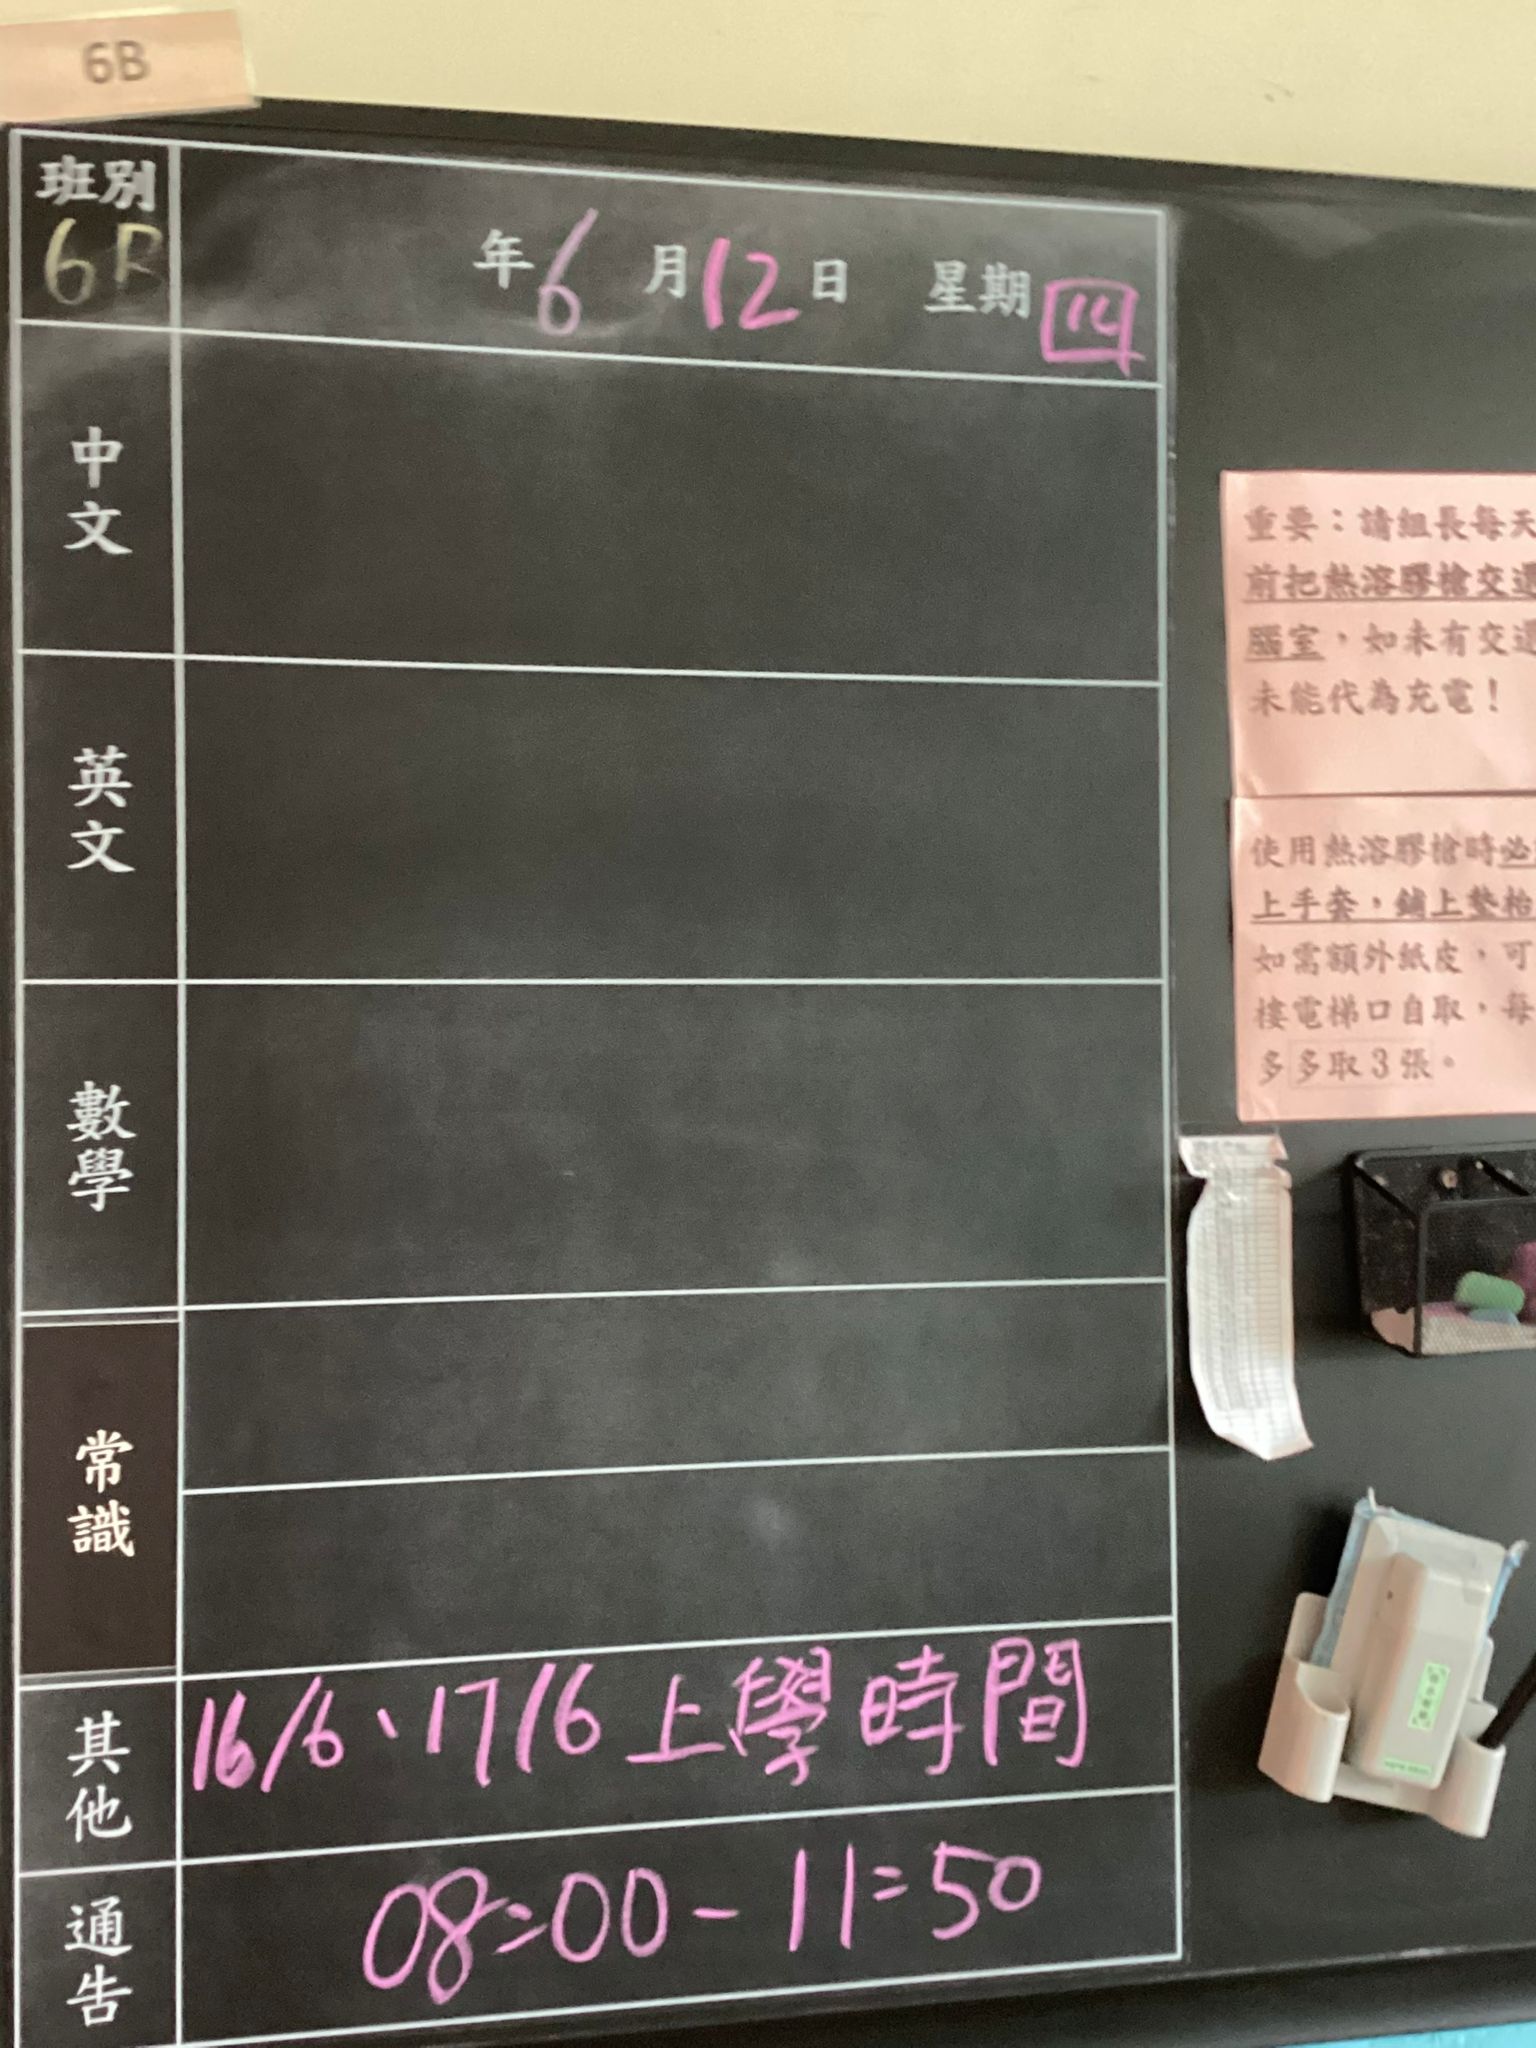 6B
班別
6B
年6月12日 星期四
中文
英文
數學
常識
其他
16/6、17/6 上學時間
通告
08:00-11:50
重要：請組長每天
前把熱溶膠槍交還
腦室，如未有交還
未能代為充電！
使用熱溶膠槍時必
上手套，鋪上墊枱
如需額外紙皮，可
樓電梯口自取，每
多多取3張。